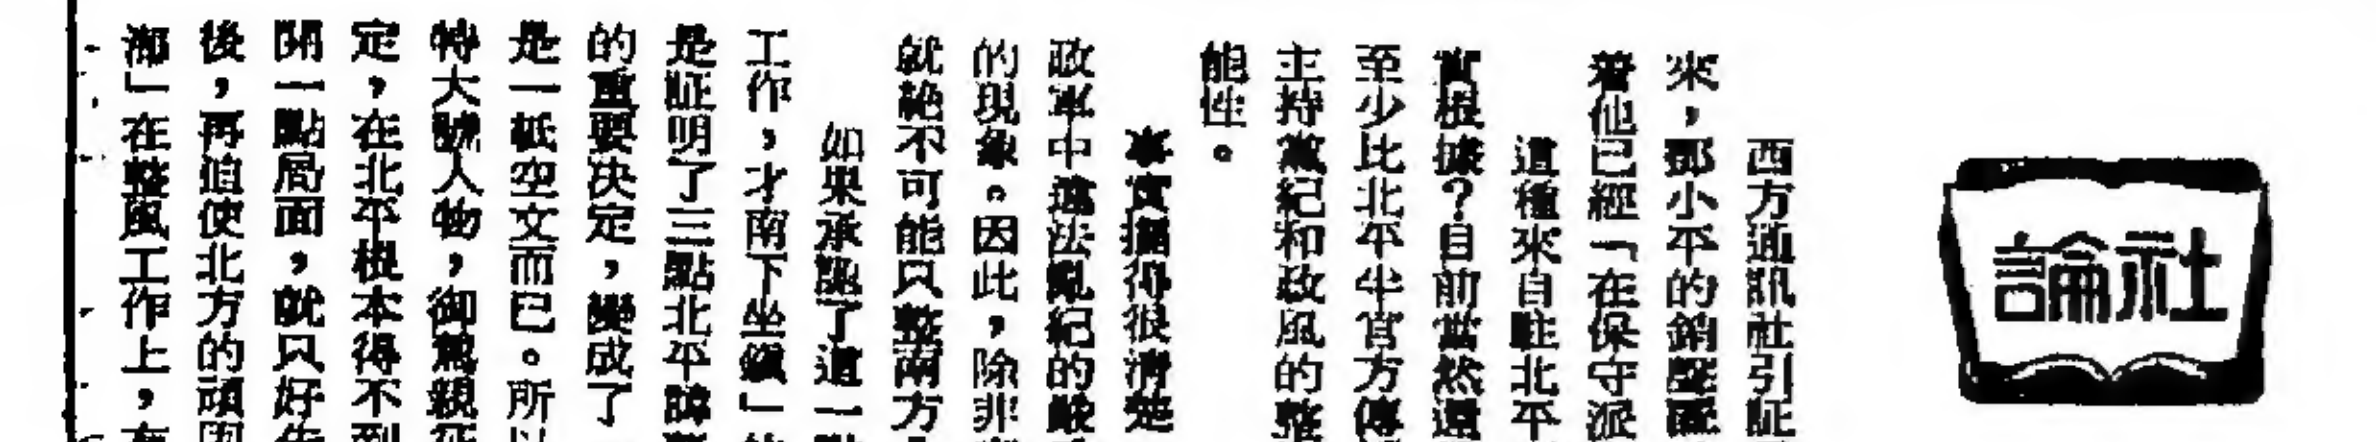 社論
西方通訊社引証
來,鄧小平的銷聲匿
着他已經「在保守派
這種來自駐北平
實根據?目前當然還
至少比北平半官方傳
主持黨紀和政風的整
能性。
事實擺得很清楚
政軍中違法亂紀的嚴
的現象。因此,除非
就絕不可能只整南方
如果承認了這一點
工作,才南下坐鎮」的
是証明了三點北平諱
的重要決定,變成了
是一紙空文而已。所以
特大號人物,御駕親征
定,在北平根本得不到
開一點局面,就只好先
後,再迫使北方的頑固
鄉」在整風工作上,有